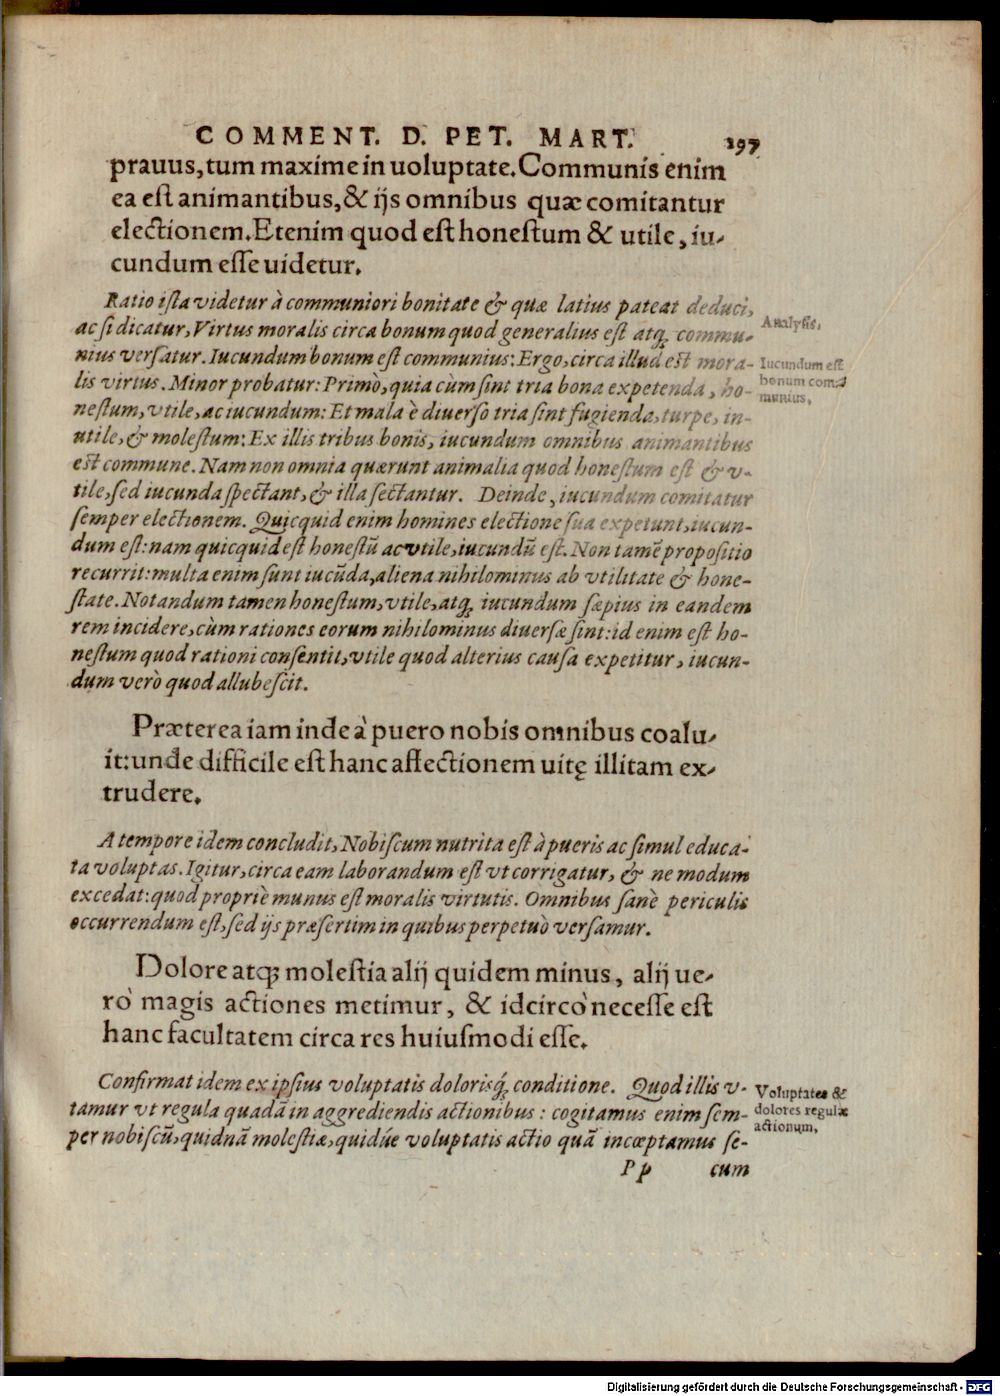 COMMENT. D. PET. MART. 297
prauus, tum maxime in uoluptate. Communis enim
ea est animantibus, & ijs omnibus quæ comitantur
electionem. Etenim quod est honestum & utile, iu-
cundum esse uidetur.
Ratio ista videtur à communiori bonitate & quæ latius pateat deduci,
ac si dicatur, Virtus moralis circa bonum quod generalius est atq; commu-
nius versatur. Iucundum bonum est communius: Ergo, circa illud est mora-
lis virtus. Minor probatur: Primò, quia cùm sint tria bona expetenda, ho-
nestum, vtile, ac iucundum: Et mala è diuerso tria sint fugienda, turpe, in-
utile, & molestum: Ex illis tribus bonis, iucundum omnibus animantibus
est commune. Nam non omnia quærunt animalia quod honestum est & v-
tile, sed iucunda spectant, & illa sectantur. Deinde, iucundum comitatur
semper electionem. Quicquid enim homines electione sua expetunt, iucun-
dum est: nam quicquid est honestū ac vtile, iucundū est. Non tamē propositio
recurrit: multa enim sunt iucūda, aliena nihilominus ab vtilitate & hone-
state. Notandum tamen honestum, vtile, atq; iucundum sæpius in eandem
rem incidere, cùm rationes eorum nihilominus diuersæ sint: id enim est ho-
nestum quod rationi consentit, vtile quod alterius causa expetitur, iucun-
dum verò quod allubescit.
Analysis,
Iucundum est
bonum com-
munius,
Præterea iam inde à puero nobis omnibus coalu-
it: unde difficile est hanc affectionem uitę illitam ex-
trudere.
A tempore idem concludit, Nobiscum nutrita est à pueris ac simul educa-
ta voluptas. Igitur, circa eam laborandum est vt corrigatur, & ne modum
excedat: quod propriè munus est moralis virtutis. Omnibus sanè periculis
occurrendum est, sed ijs præsertim in quibus perpetuò versamur.
Dolore atq; molestia alij quidem minus, alij ue-
rò magis actiones metimur, & idcircò necesse est
hanc facultatem circa res huiusmodi esse.
Confirmat idem ex ipsius voluptatis dolorisq́; conditione. Quod illis v-
tamur vt regula quadā in aggrediendis actionibus: cogitamus enim sem-
per nobiscū, quidnā molestiæ, quidúe voluptatis actio quā incœptamus se-
Voluptates &
dolores regulæ
actionum,
Pp cum
Digitalisierung gefördert durch die Deutsche Forschungsgemeinschaft - DFG